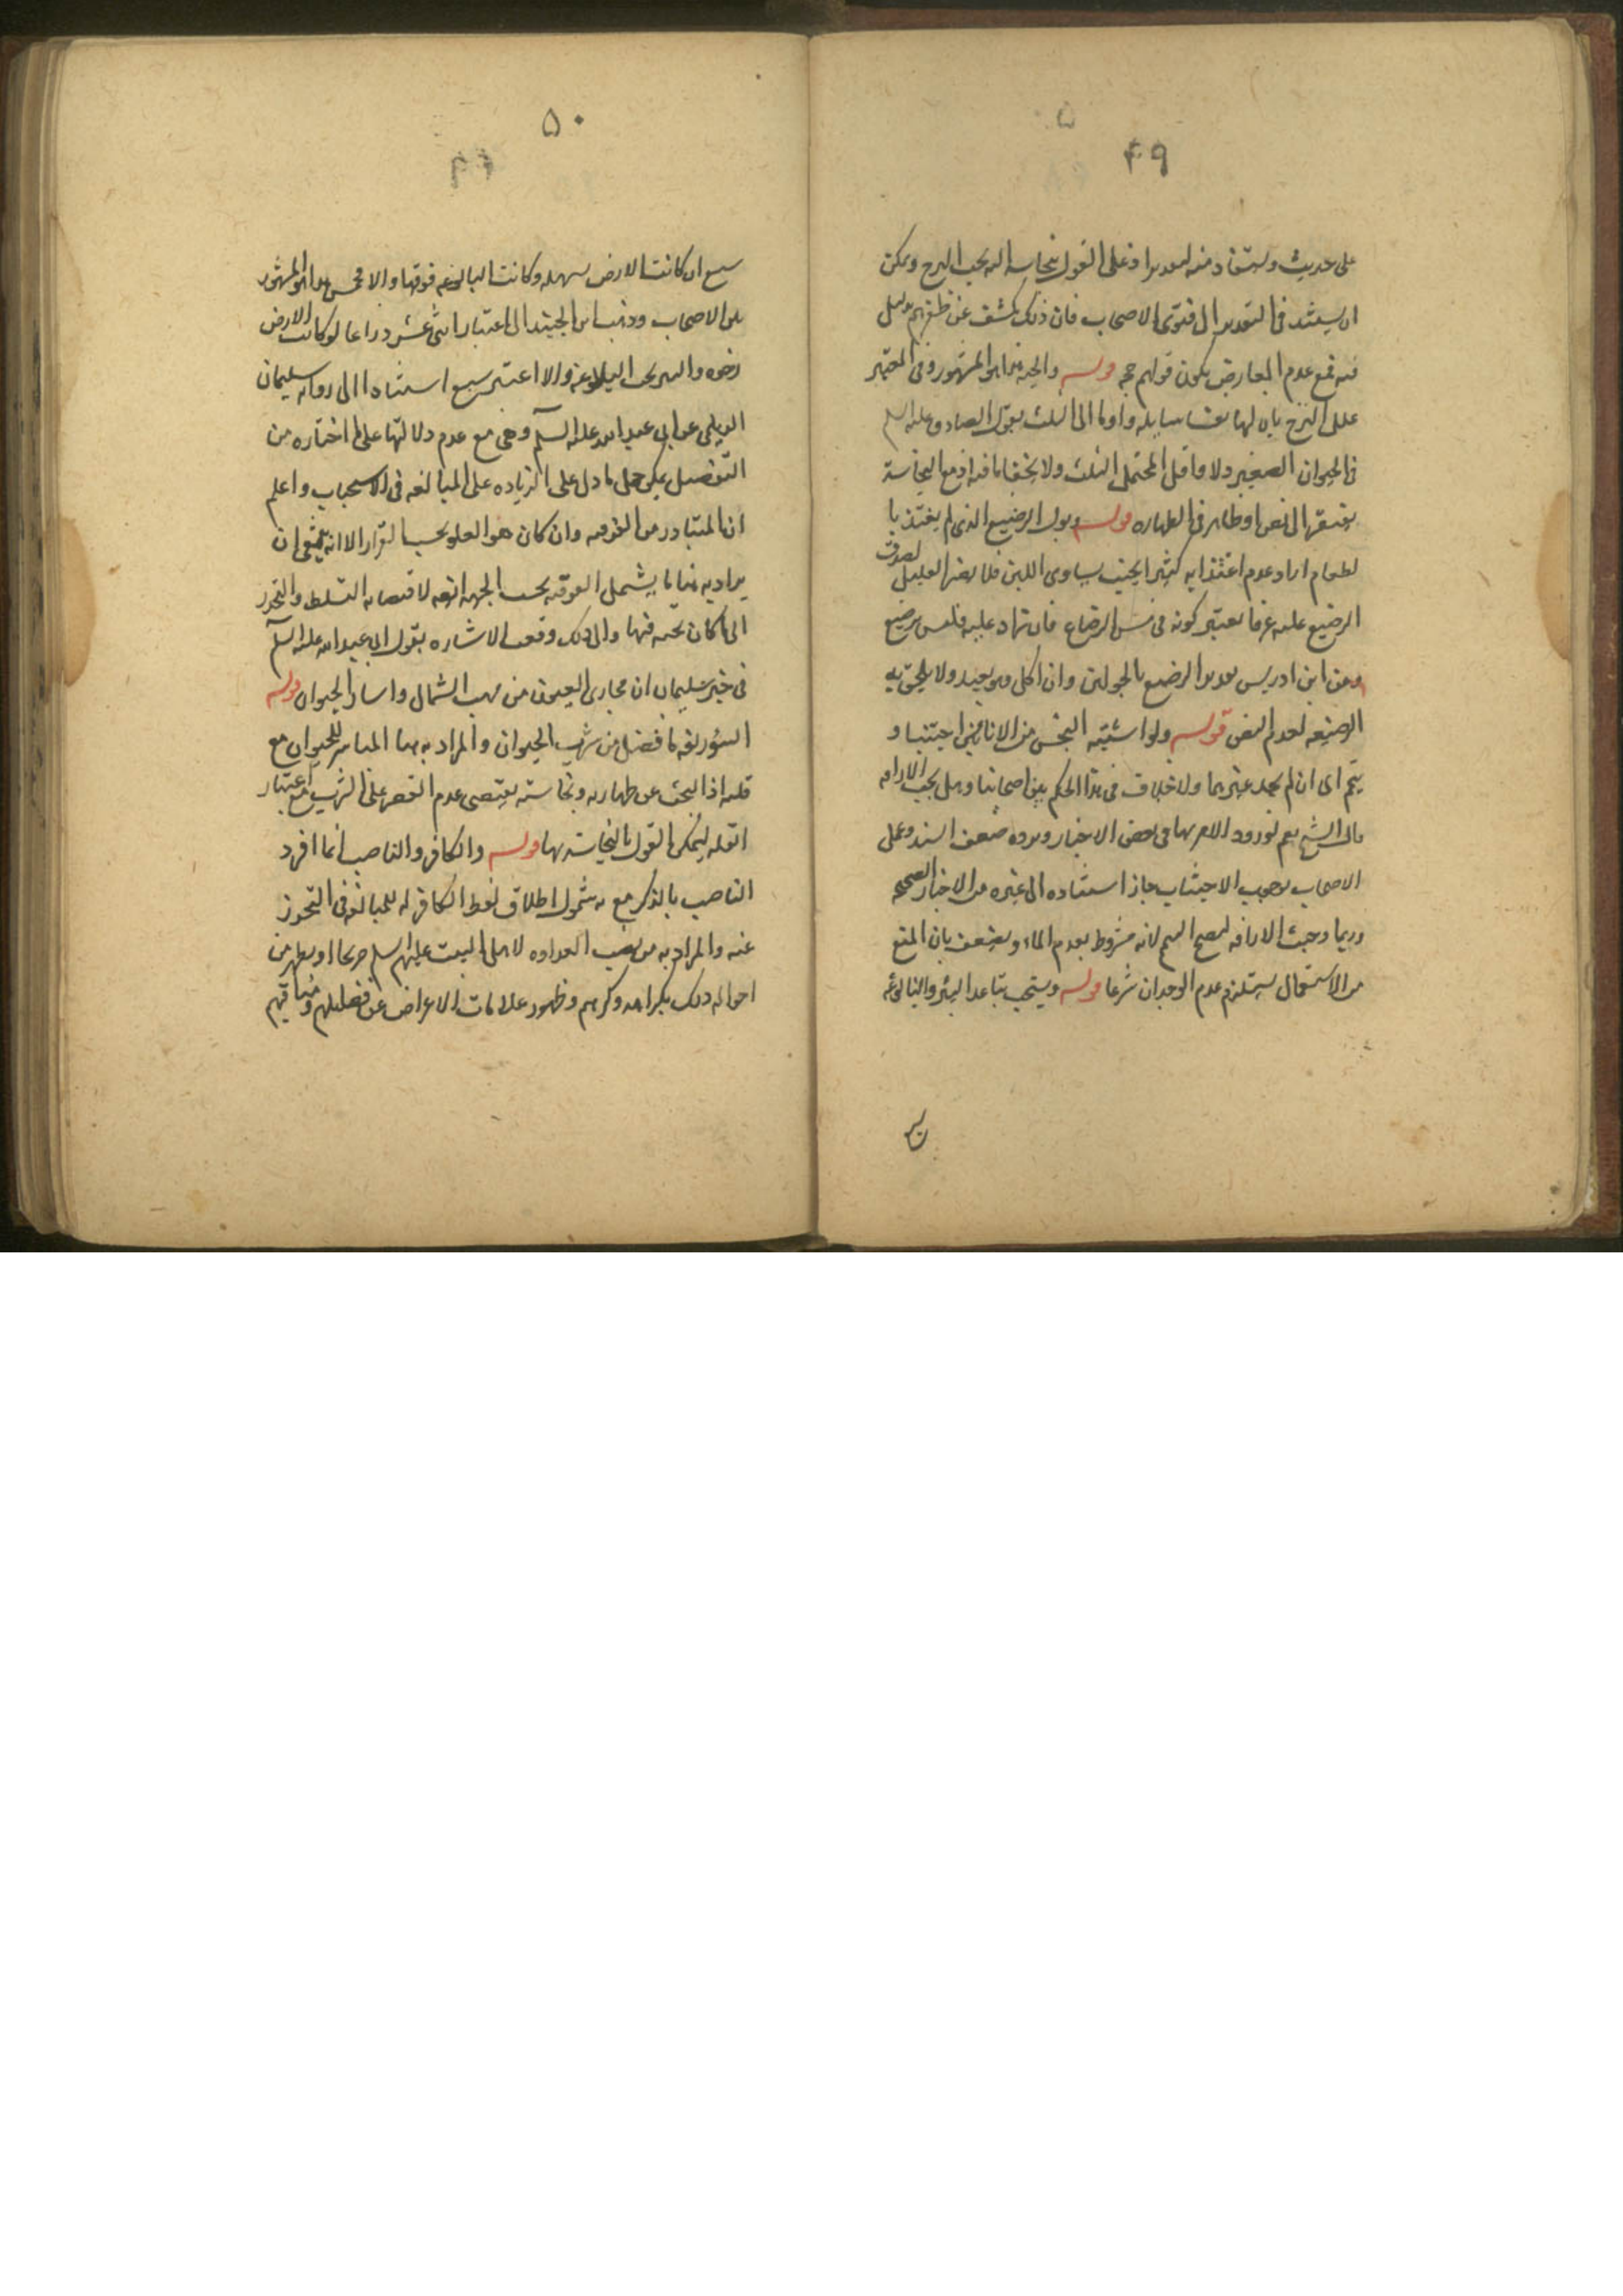 ۴۹
على حديث ويستفاد منه لعدم اذ على القول بنجاسته انه يجب النزح ويمكن
ان يستند في التقدير الى فتوى الاصحاب فان ذلك يكشف عن ظفرهم بدليل
فيه فمع عدم المعارض يكون قولهم حجه قوله والحيه هذا هو المشهور وفي المعتبر
علل النزح بان لها نفسا سايله واوما الى الثلث بقول الصادق عليه السلم
في الحيوان الصغير دلاء واقل المحتمل الثلث ولا يخفى ما فيه اذ مع النجاسة
يفتقر الى نص او ظاهر في الطهاره قوله وبول الرضيع الذي لم يغتذ با
لطعام اراد عدم اغتذايه كثيرا بحيث يساوي اللبن فلا يضر القليل لصدق
الرضيع عليه عرفا يعتبر كونه في سن الرضاع فان زاد عليه فليس برضيع
وعن ابن ادريس تحديد الرضيع بالحولين وان اكل وهو بعيد ولا يلحق به
الرضيعه لعدم النص قوله ولو اشتبه النجس من الانائين اجتنبا و
يتمم اى ان لم يجد غيرهما ولا خلاف في هذا الحكم بين اصحابنا وهل يجب الاراقه
قال الشيخ نعم لورود الامر بها في بعض الاخبار ويرده ضعف السند وعمل
الاصحاب بوجوب الاجتناب جاز استناده الى غيره من الاخبار الصحيحه
وربما وجبت الاراقه ليصح التيمم لانه مشروط بعدم الماء ويضعف بان المنع
من الاستعمال يستلزم عدم الوجدان شرعا قوله ويستحب تباعد البئر والبالوعه
۵۰
سبع ان كانت الارض سهله وكانت البالوعه فوقها والا فخمس هذا هو المشهور
بين الاصحاب وذهب ابن الجنيد الى اعتبار اثني عشر ذراعا لو كانت الارض
رخوه والبير تحت البالوعه والا اعتبر سبع استنادا الى روايه سليمان
الديلمي عن ابي عبد الله عليه السلم وهي مع عدم دلالتها على ما اختاره من
التفصيل يمكن حمل ما دل على الزياده على المبالغه في الاستحباب واعلم
ان المتبادر من الفوقيه وان كان هو العلو بحسب القرار الا انه ينبغي ان
يراد به هنا ما يشمل الفوقيه بحسب الجهه ايضا لاقتضائه التسلط والتحدر
الى ما كان تحته فيها والى ذلك وقعت الاشاره بقول ابى عبد الله عليه السلم
في خبر سليمان ان مجارى العيون من مهب الشمال واسار الحيوان قوله
السؤر لغه ما فضل من شرب الحيوان والمراد به هنا المباشر للحيوان مع
قلته اذ البحث عن طهارته ونجاسته يقتضى عدم القصر على الشرب مع اعتبار
القله ليمكن القول بالنجاسه بها قوله والكافر والناصب انما افرد
الناصب بالذكر مع شمول اطلاق لفظ الكافر له للمبالغه في التحرز
عنه والمراد به من نصب العداوه لاهل البيت عليهم السلم صريحا او يظهر من
احواله ذلك بكراهه ذكرهم وظهور علامات الاعراض عن فضلهم ومناقبهم